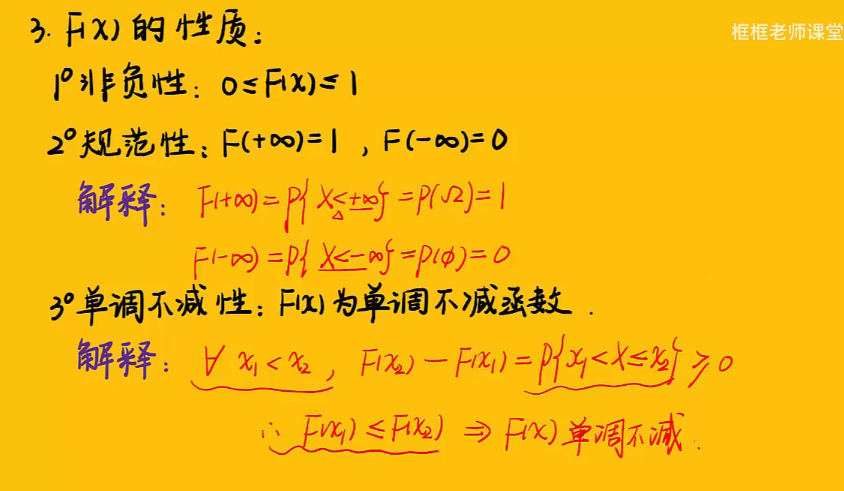 框框老师课堂
3. F(x) 的性质:
1° 非负性: 0≤F(x)≤1
2° 规范性: F(+∞)=1 , F(-∞)=0
解释: F(+∞)=P{X≤+∞}=P(Ω)=1
F(-∞)=P{X<-∞}=P(φ)=0
3° 单调不减性: F(x)为单调不减函数.
解释: ∀ x₁<x₂, F(x₂)-F(x₁)=P{x₁<X≤x₂}≥0
∴ F(x₁)≤F(x₂) ⇒ F(x)单调不减.